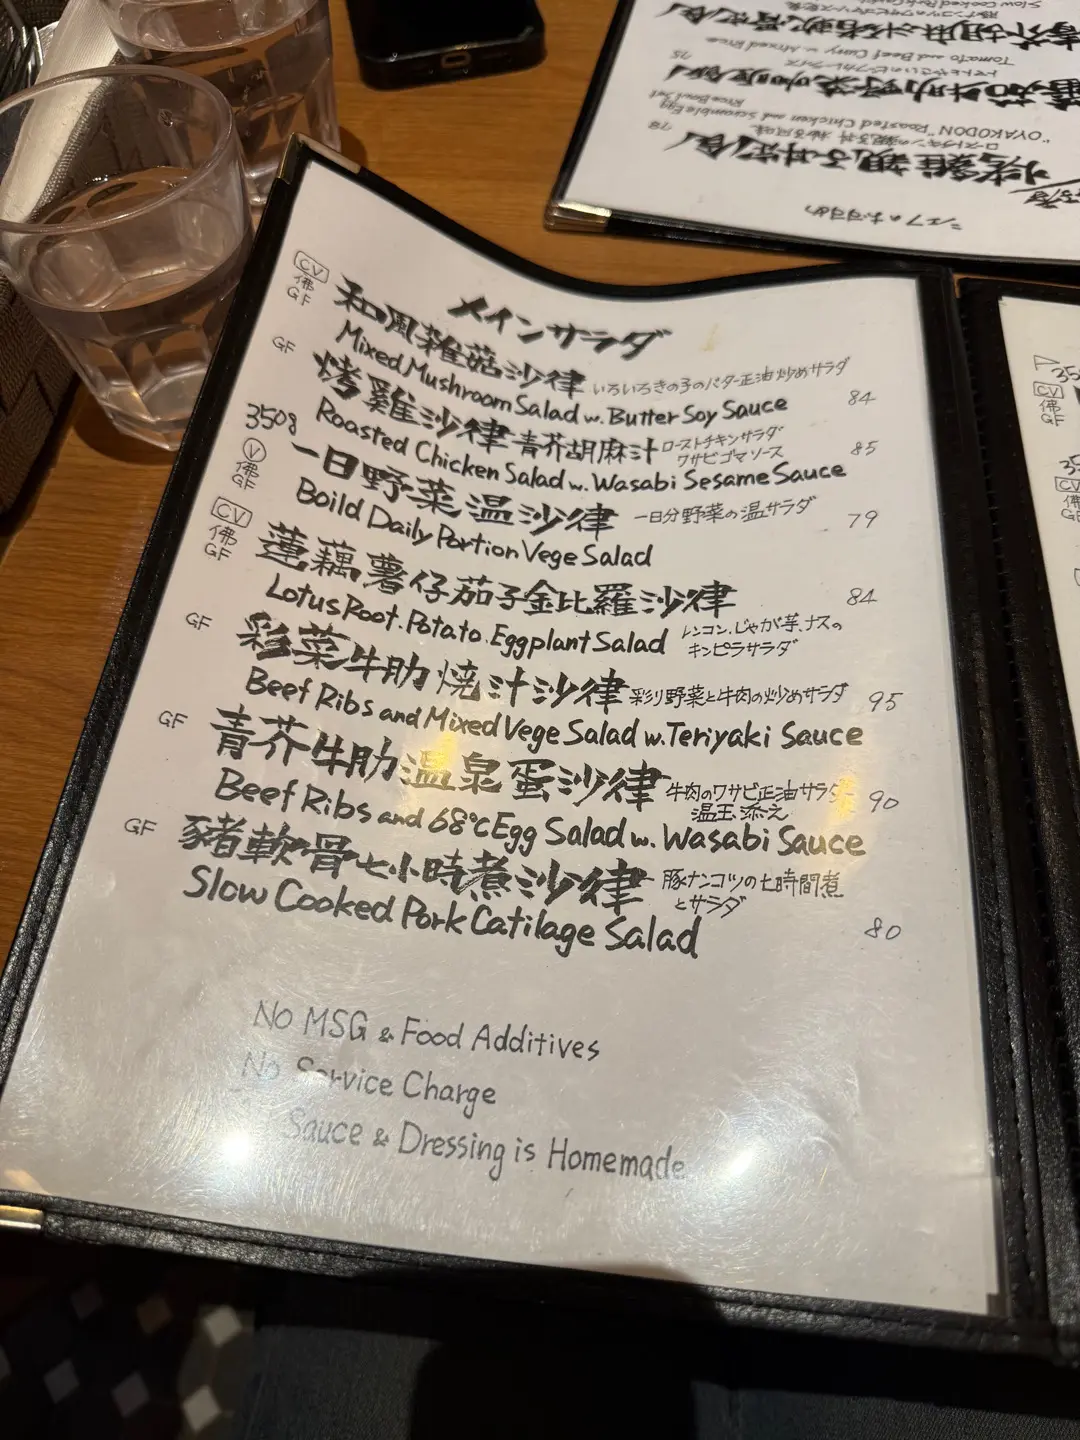 メインサラダ
CV
佛
GF
和風雑菇沙律 いろいろきの子のバター正油炒めサラダ 84
Mixed Mushroom Salad w. Butter Soy Sauce
GF
烤雞沙律 青芥胡麻汁 ローストチキンサラダ
ワサビゴマソース 85
350g
Roasted Chicken Salad w. Wasabi Sesame Sauce
V
佛
GF
一日野菜温沙律 一日分野菜の温サラダ 79
Boild Daily Portion Vege Salad
CV
佛
GF
蓮藕薯仔茄子金比羅沙律 84
Lotus Root. Potato. Eggplant Salad レンコン、じゃが芋、ナスの
キンピラサラダ
GF
彩菜牛肋焼汁沙律 彩り野菜と牛肉の炒めサラダ 95
Beef Ribs and Mixed Vege Salad w. Teriyaki Sauce
GF
青芥牛肋温泉蛋沙律 牛肉のワサビ正油サラダ
温玉添え 90
Beef Ribs and 68°C Egg Salad w. Wasabi Sauce
GF
豬軟骨七小時煮沙律 豚ナンコツの七時間煮
とサラダ 80
Slow Cooked Pork Catilage Salad
No MSG & Food Additives
No Service Charge
Sauce & Dressing is Homemade
シェフのおすすめ
焼雞親子丼定食
78
"OYAKODON" Roasted Chicken and Scramble Egg
Rice Bowl Set
蕃茄牛肋野菜咖喱飯
75
Tomato and Beef Curry w. Mixed Rice
青芥胡麻汁
350
CV
佛
GF